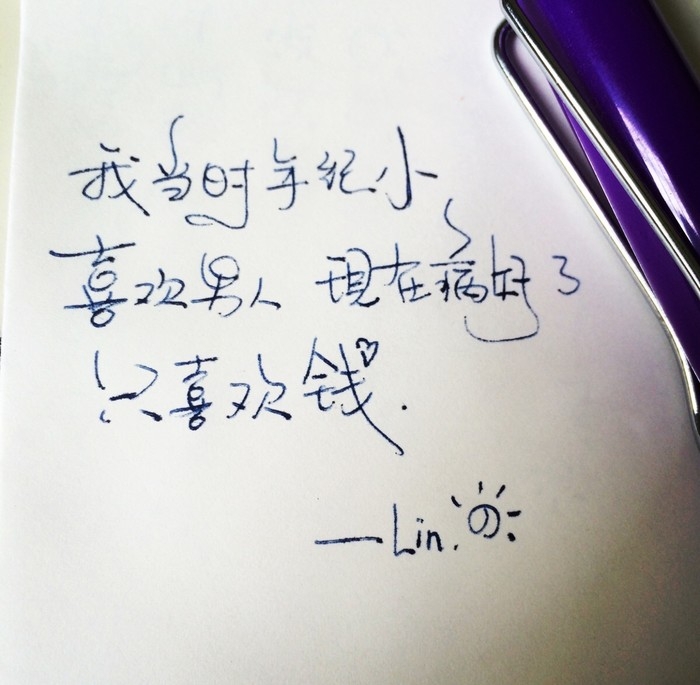 我当时年纪小
喜欢男人 现在病好了
只喜欢钱.
—Lin. の